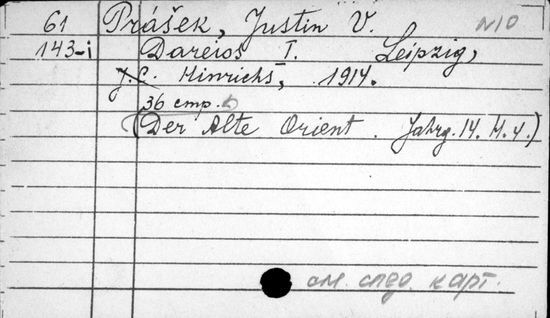 61 Prášek, Justin V. N10
143-i Dareios I. Leipzig,
J.C. Hinrichs, 1914.
36 стр.
(Der Alte Orient. Jahrg. 14. H. 4.)
см. след. карт.